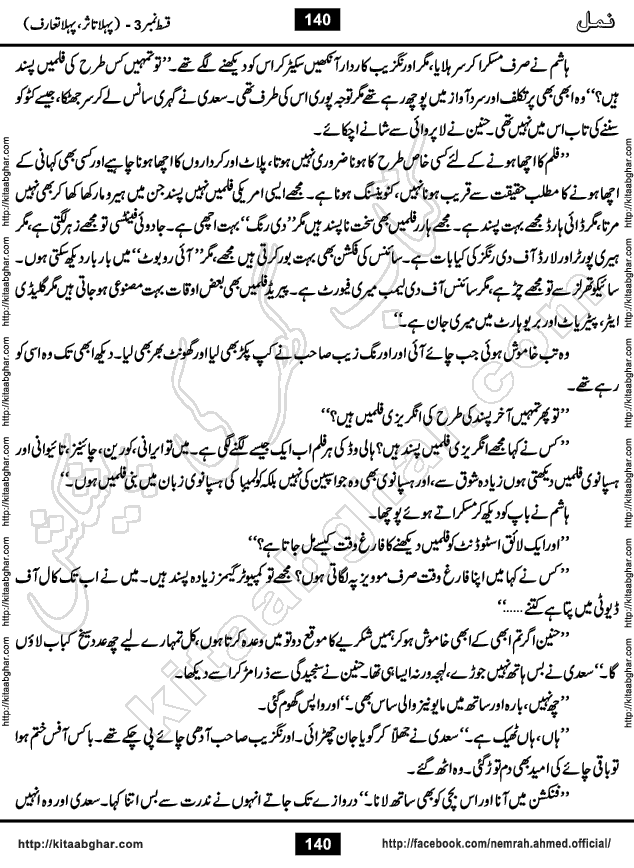 نمل
140
قسط نمبر 3 - (پہلا تاثر، پہلا تعارف)
ہاشم نے صرف مسکرا کر سر ہلایا، مگر اورنگزیب کاردار آنکھیں سکیڑ کر اس کو دیکھنے لگے تھے۔ ’’تو تمہیں کس طرح کی فلمیں پسند
ہیں؟‘‘ وہ ابھی بھی پر تکلف اور سرد آواز میں پوچھ رہے تھے مگر توجہ پوری اس کی طرف تھی۔ سعدی نے گہری سانس لے کر سر جھٹکا، جیسے کٹو کو
سننے کی تاب اس میں نہیں تھی۔ حنین نے لاپروائی سے شانے اچکائے۔
’’فلم کا اچھا ہونے کے لئے کسی خاص طرح کا ہونا ضروری نہیں ہوتا، پلاٹ اور کرداروں کا اچھا ہونا چاہیے اور کسی بھی کہانی کے
اچھا ہونے کا مطلب حقیقت سے قریب ہونا نہیں، کنوینسنگ ہونا ہے۔ مجھے ایسی امریکی فلمیں نہیں پسند جن میں ہیرو مار کھا کھا کر بھی نہیں
مرتا، مگر ڈائی ہارڈ مجھے بہت پسند ہے۔ مجھے ہارر فلمیں بھی سخت ناپسند ہیں مگر ’’دی رنگ‘‘ بہت اچھی ہے۔ جادوئی فینٹسی تو مجھے زہر لگتی ہے، مگر
ہیری پورٹر اور لارڈ آف دی رنگز کی کیا بات ہے۔ سائنس کی فکشن بھی بہت بور کرتی ہیں مجھے، مگر ’’آئی روبوٹ‘‘ میں بار بار دیکھ سکتی ہوں۔
سائیکو تھرلز سے تو مجھے چڑ ہے، مگر سائنس آف دی لیمب میری فیورٹ ہے۔ پیریڈ فلمیں بھی بعض اوقات بہت مصنوعی ہو جاتی ہیں مگر گلیڈی
ایٹر، پیٹریاٹ اور بریو ہارٹ میں میری جان ہے۔‘‘
وہ تب خاموش ہوئی جب چائے آئی اور اورنگ زیب صاحب نے کپ پکڑ بھی لیا اور گھونٹ بھر بھی لیا۔ دیکھ ابھی تک وہ اسی کو
رہے تھے۔
’’تو پھر تمہیں آخر پسند کی طرح کی انگریزی فلمیں ہیں؟‘‘
’’کس نے کہا مجھے انگریزی فلمیں پسند ہیں؟ ہالی وڈ کی ہر فلم اب ایک جیسے لگنے لگی ہے۔ میں تو ایرانی، کورین، چائنیز، تائیوانی اور
ہسپانوی فلمیں دیکھتی ہوں زیادہ شوق سے، اور ہسپانوی بھی وہ جو اسپین کی نہیں بلکہ کولمبیا کی ہسپانوی زبان میں بنی فلمیں ہوں۔‘‘
ہاشم نے باپ کو دیکھ کر مسکراتے ہوئے پوچھا۔
’’اور ایک لائق اسٹوڈنٹ کو فلمیں دیکھنے کا فارغ وقت کیسے مل جاتا ہے؟‘‘
’’کس نے کہا میں اپنا فارغ وقت صرف موویز پہ لگاتی ہوں؟ مجھے تو کمپیوٹر گیمز زیادہ پسند ہیں۔ میں نے اب تک کال آف
ڈیوٹی میں پتا ہے کتنے.....‘‘
’’حنین اگر تم ابھی کے ابھی خاموش ہو کر ہمیں شکریے کا موقع دو تو میں وعدہ کرتا ہوں، کل تمہارے لیے چھ عدد سیخ کباب لاؤں
گا۔‘‘ سعدی نے بس ہاتھ نہیں جوڑے، لہجہ ورنہ ایسا ہی تھا۔ حنین نے سنجیدگی سے ذرا مڑ کر اسے دیکھا۔
’’چھ نہیں، بارہ اور ساتھ میں مایونیز والی ساس بھی۔‘‘ اور واپس گھوم گئی۔
’’ہاں، ہاں ٹھیک ہے۔‘‘ سعدی نے جھلّا کر گویا جان چھڑائی۔ اورنگزیب صاحب آدھی چائے پی چکے تھے۔ باکس آفس ختم ہوا
تو باقی چائے کی امید بھی دم توڑ گئی۔ وہ اٹھ گئے۔
’’فنکشن میں آنا اور اس بچی کو بھی ساتھ لانا۔‘‘ دروازے تک جاتے انہوں نے ندرت سے بس اتنا کہا۔ سعدی اور وہ انہیں
http://kitaabghar.com
140
http://facebook.com/nemrah.ahmed.official/
http://kitaabghar.com
http://kitaabghar.com
http://kitaabghar.com
http://kitaabghar.com
http://kitaabghar.com
http://kitaabghar.com
http://kitaabghar.com
http://kitaabghar.com
http://kitaabghar.com
http://kitaabghar.com
http://kitaabghar.com
http://kitaabghar.com
کتاب گھر کی پیشکش
kitaabghar.com